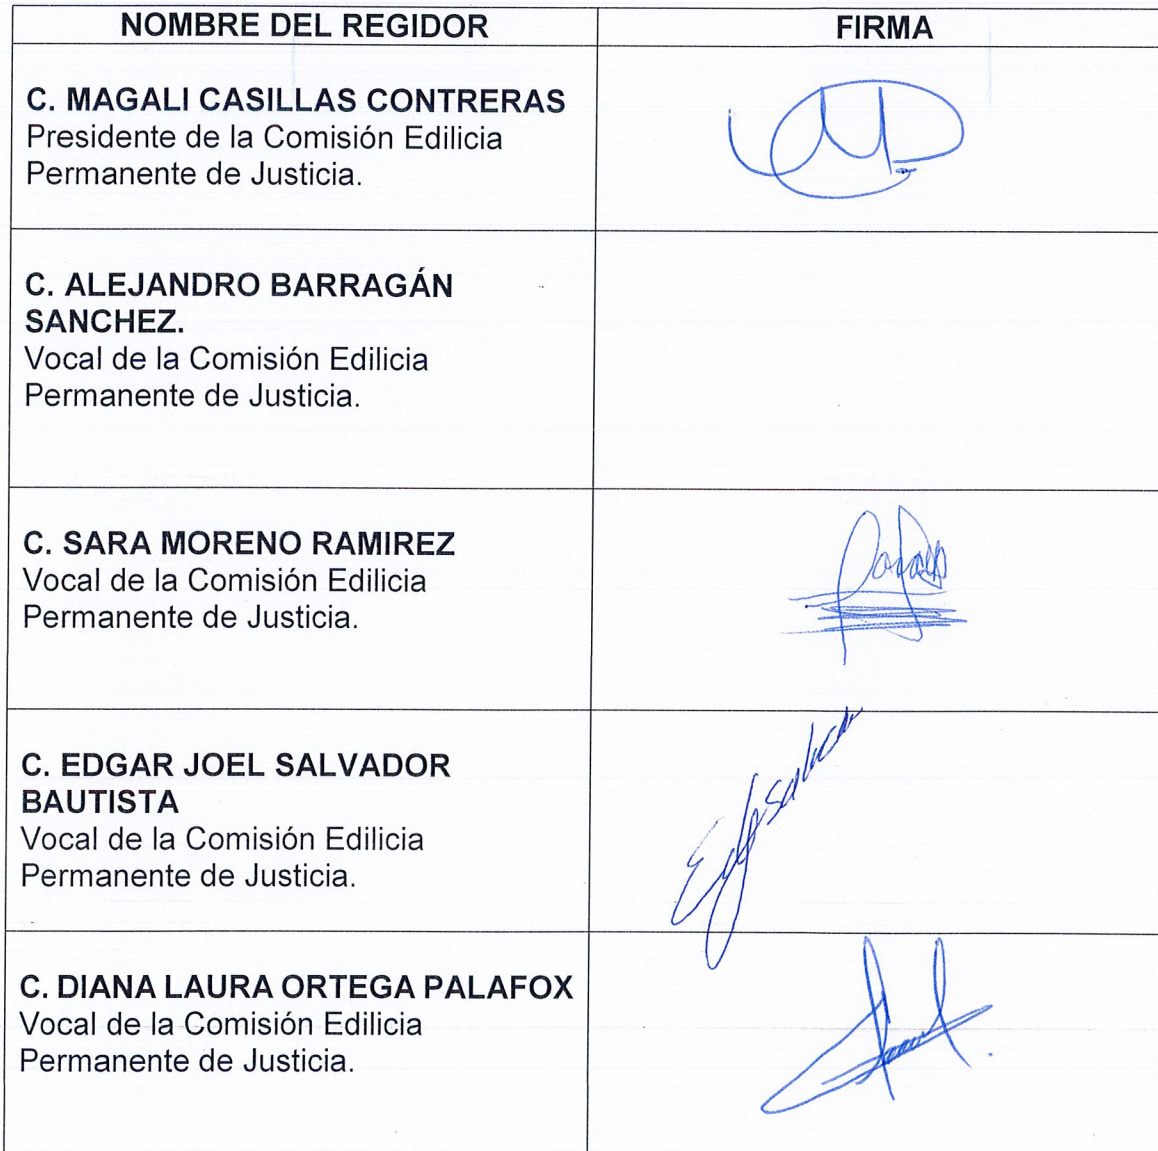 NOMBRE DEL REGIDOR FIRMA
C. MAGALI CASILLAS CONTRERAS
Presidente de la Comisión Edilicia
Permanente de Justicia.
C. ALEJANDRO BARRAGÁN
SANCHEZ.
Vocal de la Comisión Edilicia
Permanente de Justicia.
C. SARA MORENO RAMIREZ
Vocal de la Comisión Edilicia
Permanente de Justicia.
C. EDGAR JOEL SALVADOR
BAUTISTA
Vocal de la Comisión Edilicia
Permanente de Justicia.
C. DIANA LAURA ORTEGA PALAFOX
Vocal de la Comisión Edilicia
Permanente de Justicia.